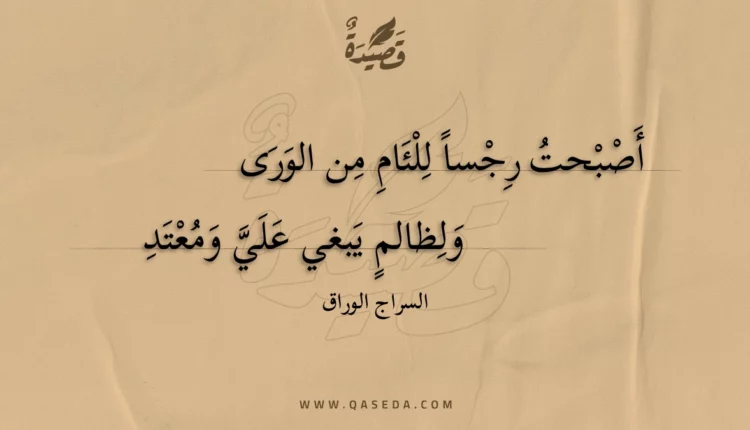 قَصِيدَةٌ
أَصْبْحتُ رِجْساً لِلْئَامِ مِن الوَرَى
وَلِظالمٍ يَبغي عَلَيَّ وَمُعْتَدِ
السراج الوراق
WWW.QASEDA.COM